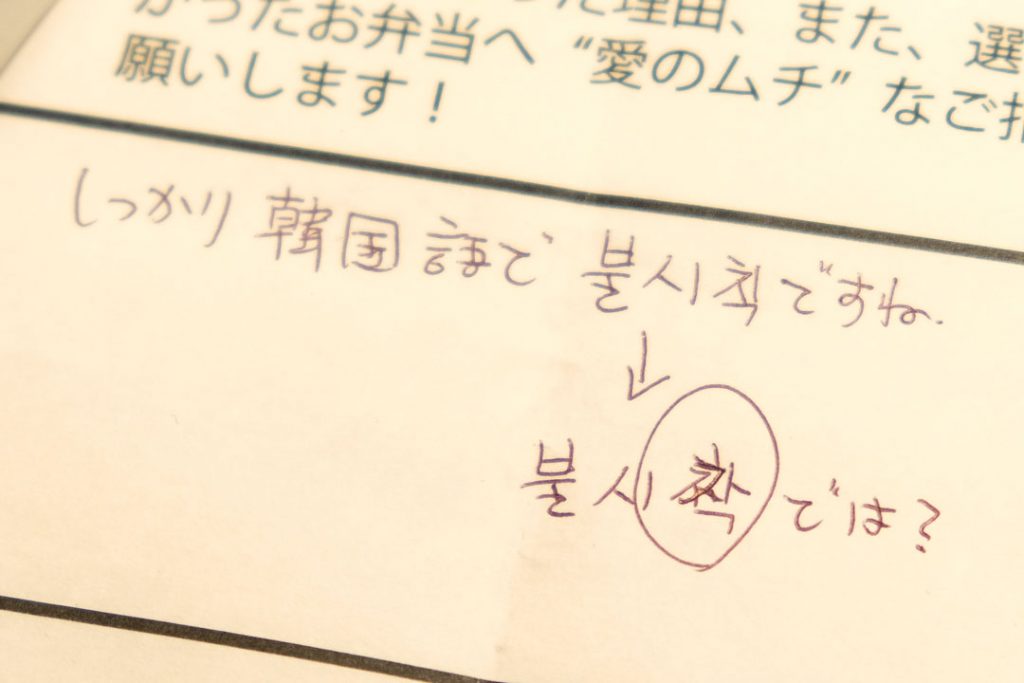 った理由、また、選
かったお弁当へ “愛のムチ” なご指
願いします！
しっかり韓国語で 불시칙ですね.
↓
불시착では?